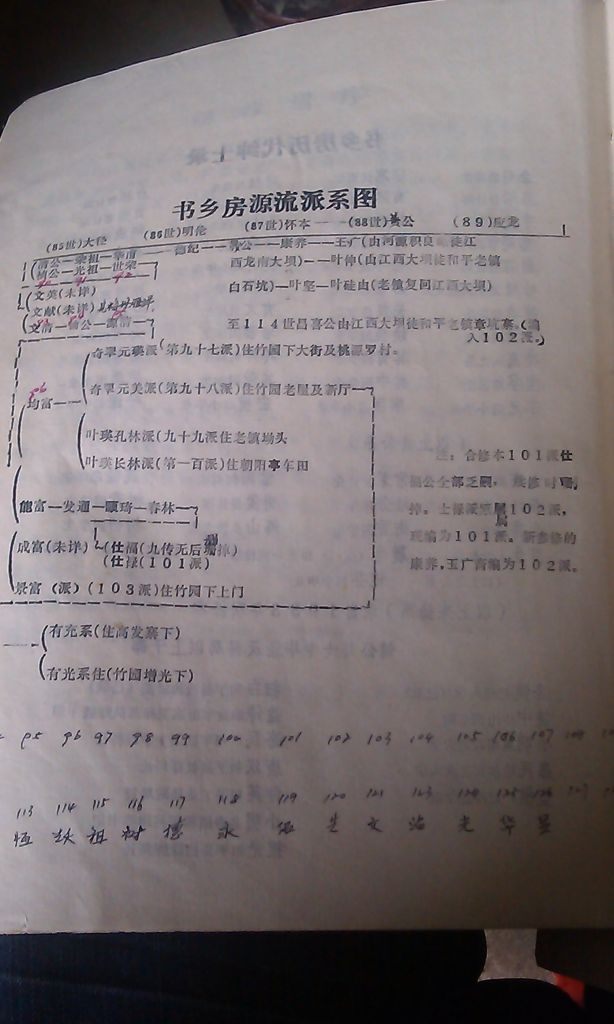 书乡房源流派系图
(85世)大径 (86世)明伦 (87世)怀本——(88世)黄公 (89)应龙
康养——王广(由河源积良徒江
西龙南大坝)——叶伸(由江西大坝徒和平老镇
白石坑)——叶坚—叶硅山(老镇复回江西大坝)
文英(未详)
文献(未详)
至114世昌喜公由江西大坝徒和平老镇章坑寨。(编
入102派。)
奇翠元瑛派(第九十七派)住竹园下大街及桃源罗村。
96
均富——
奇翠元美派(第九十八派)住竹园老屋及新厅
叶瑛孔林派(九十九派住老镇坳头
叶瑛长林派(第一百派)住朝阳亭车田
注:合修本101派仕
福公全部乏嗣,续修时删
掉。仕禄派原属102派,
属
现编为101派。新参修的
康养,王广裔编为102派。
能富—发通—颐琦—春林
成富(未详)
(仕福(九传无后删掉)
(仕禄(101派)
景富(派)(103派)住竹园下上门
有充系(住高发寨下)
有光系住(竹园增光下)
95 96 97 98 99 100 101 102 103 104 105 106 107 108
113 114 115 116 117 118 119 120 121 123 124 125 126 127
祖 树 德 永 文 光 华